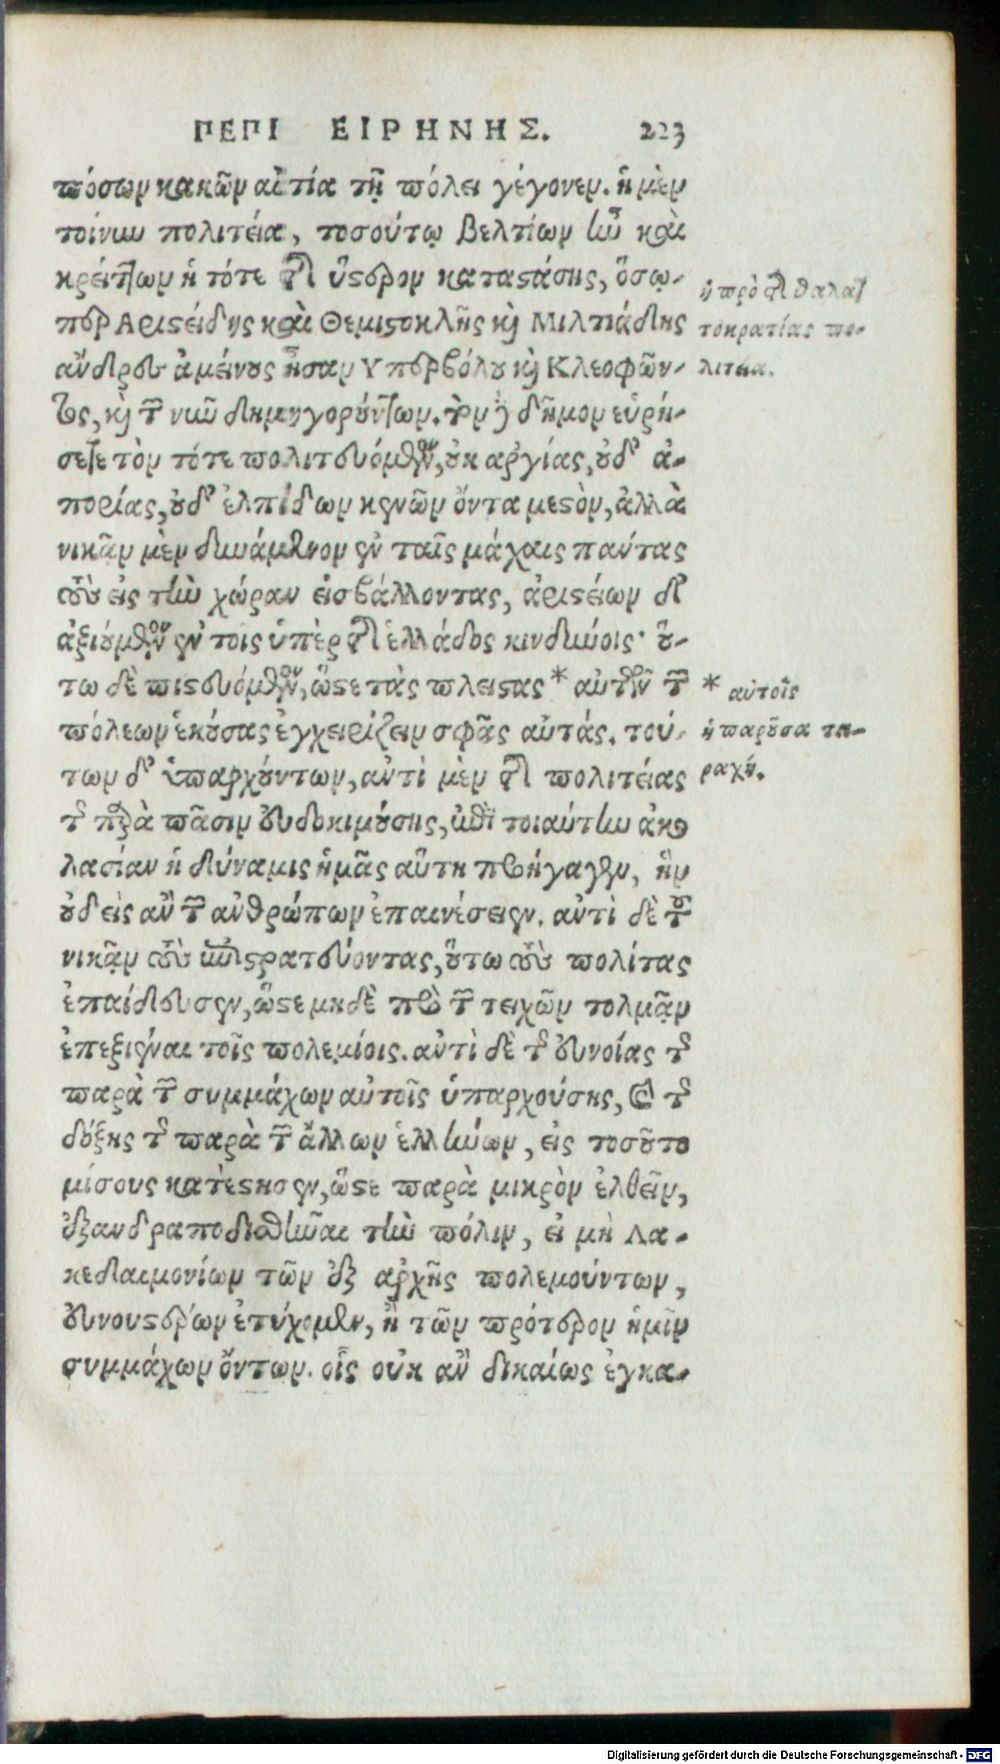 ΠΕΡΙ ΕΙΡΗΝΗΣ. 223
πόσων κακῶν αἰτία τῇ πόλει γέγονεν. ἡ μὲν
τοίνυν πολιτεία, τοσούτῳ βελτίων ἦν καὶ
κρείττων ἡ τότε τῆς ὕστερον καταστάσης, ὅσῳ-
περ Αριστείδης καὶ Θεμιστοκλῆς καὶ Μιλτιάδης
ἄνδρες ἀμείνους ἦσαν Υπερβόλου καὶ Κλεοφῶν-
τος, καὶ τῶν νῦν δημηγορούντων. τὸν δὲ δῆμον εὑρή-
σετε τὸν τότε πολιτευόμενον, οὐκ ἀργίας, οὐδ' ἀ-
πορίας, οὐδ' ἐλπίδων κενῶν ὄντα μεστὸν, ἀλλὰ
νικᾶν μὲν δυνάμενον ἐν ταῖς μάχαις πάντας
τοὺς εἰς τὴν χώραν εἰσβάλλοντας, ἀριστείων δ'
ἀξιούμενον ἐν τοῖς ὑπὲρ τῆς ἑλλάδος κινδύνοις· οὕ-
τω δὲ πιστευόμενον, ὥστε τὰς πλείστας * αὐτὸν τῶν
πόλεων ἑκούσας ἐγχειρίζειν σφᾶς αὐτάς. τού-
των δ' ὑπαρχόντων, ἀντὶ μὲν τῆς πολιτείας
τῆς παρὰ πᾶσιν εὐδοκιμούσης, ἐπὶ τοιαύτην ἀκο
λασίαν ἡ δύναμις ἡμᾶς αὕτη προήγαγεν, ἣν
οὐδεὶς ἂν τῶν ἀνθρώπων ἐπαινέσειεν. ἀντὶ δὲ τοῦ
νικᾶν τοὺς ἐπιστρατεύοντας, οὕτω τοὺς πολίτας
ἐπαίδευσεν, ὥστε μηδὲ πρὸ τῶν τειχῶν τολμᾶν
ἐπεξιέναι τοῖς πολεμίοις. ἀντὶ δὲ τῆς εὐνοίας τῆς
παρὰ τῶν συμμάχων αὐτοῖς ὑπαρχούσης, καὶ τῆς
δόξης τῆς παρὰ τῶν ἄλλων ἑλλήνων, εἰς τοσοῦτο
μίσους κατέστησεν, ὥστε παρὰ μικρὸν ἐλθεῖν,
ἐξανδραποδισθῆναι τὴν πόλιν, εἰ μὴ Λα-
κεδαιμονίων τῶν ἐξ ἀρχῆς πολεμούντων,
εὐνουστέρων ἐτύχομεν, ἢ τῶν πρότερον ἡμῖν
συμμάχων ὄντων. οἷς οὐκ ἂν δικαίως ἐγκα-
ἡ πρὸ τῆς θαλατ
τοκρατίας πο-
λιτεία.
* αὐτοῖς
ἡ παροῦσα τα-
ραχή.